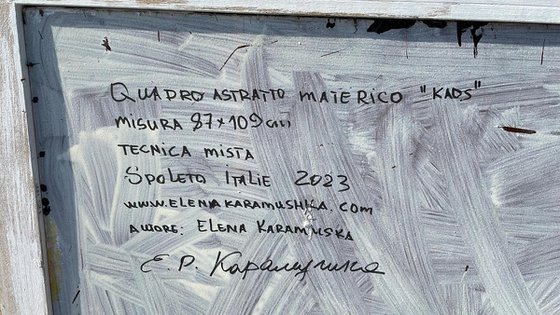 QUADRO ASTRATTO MATERICO "KAOS"
MISURA 87×109 cm
TECNICA MISTA
SPOLETO ITALIE 2023
WWW.ELENAKARAMUSHKA.COM
AUTORE: ELENA KARAMUSKA
Е.Р. Карамушка